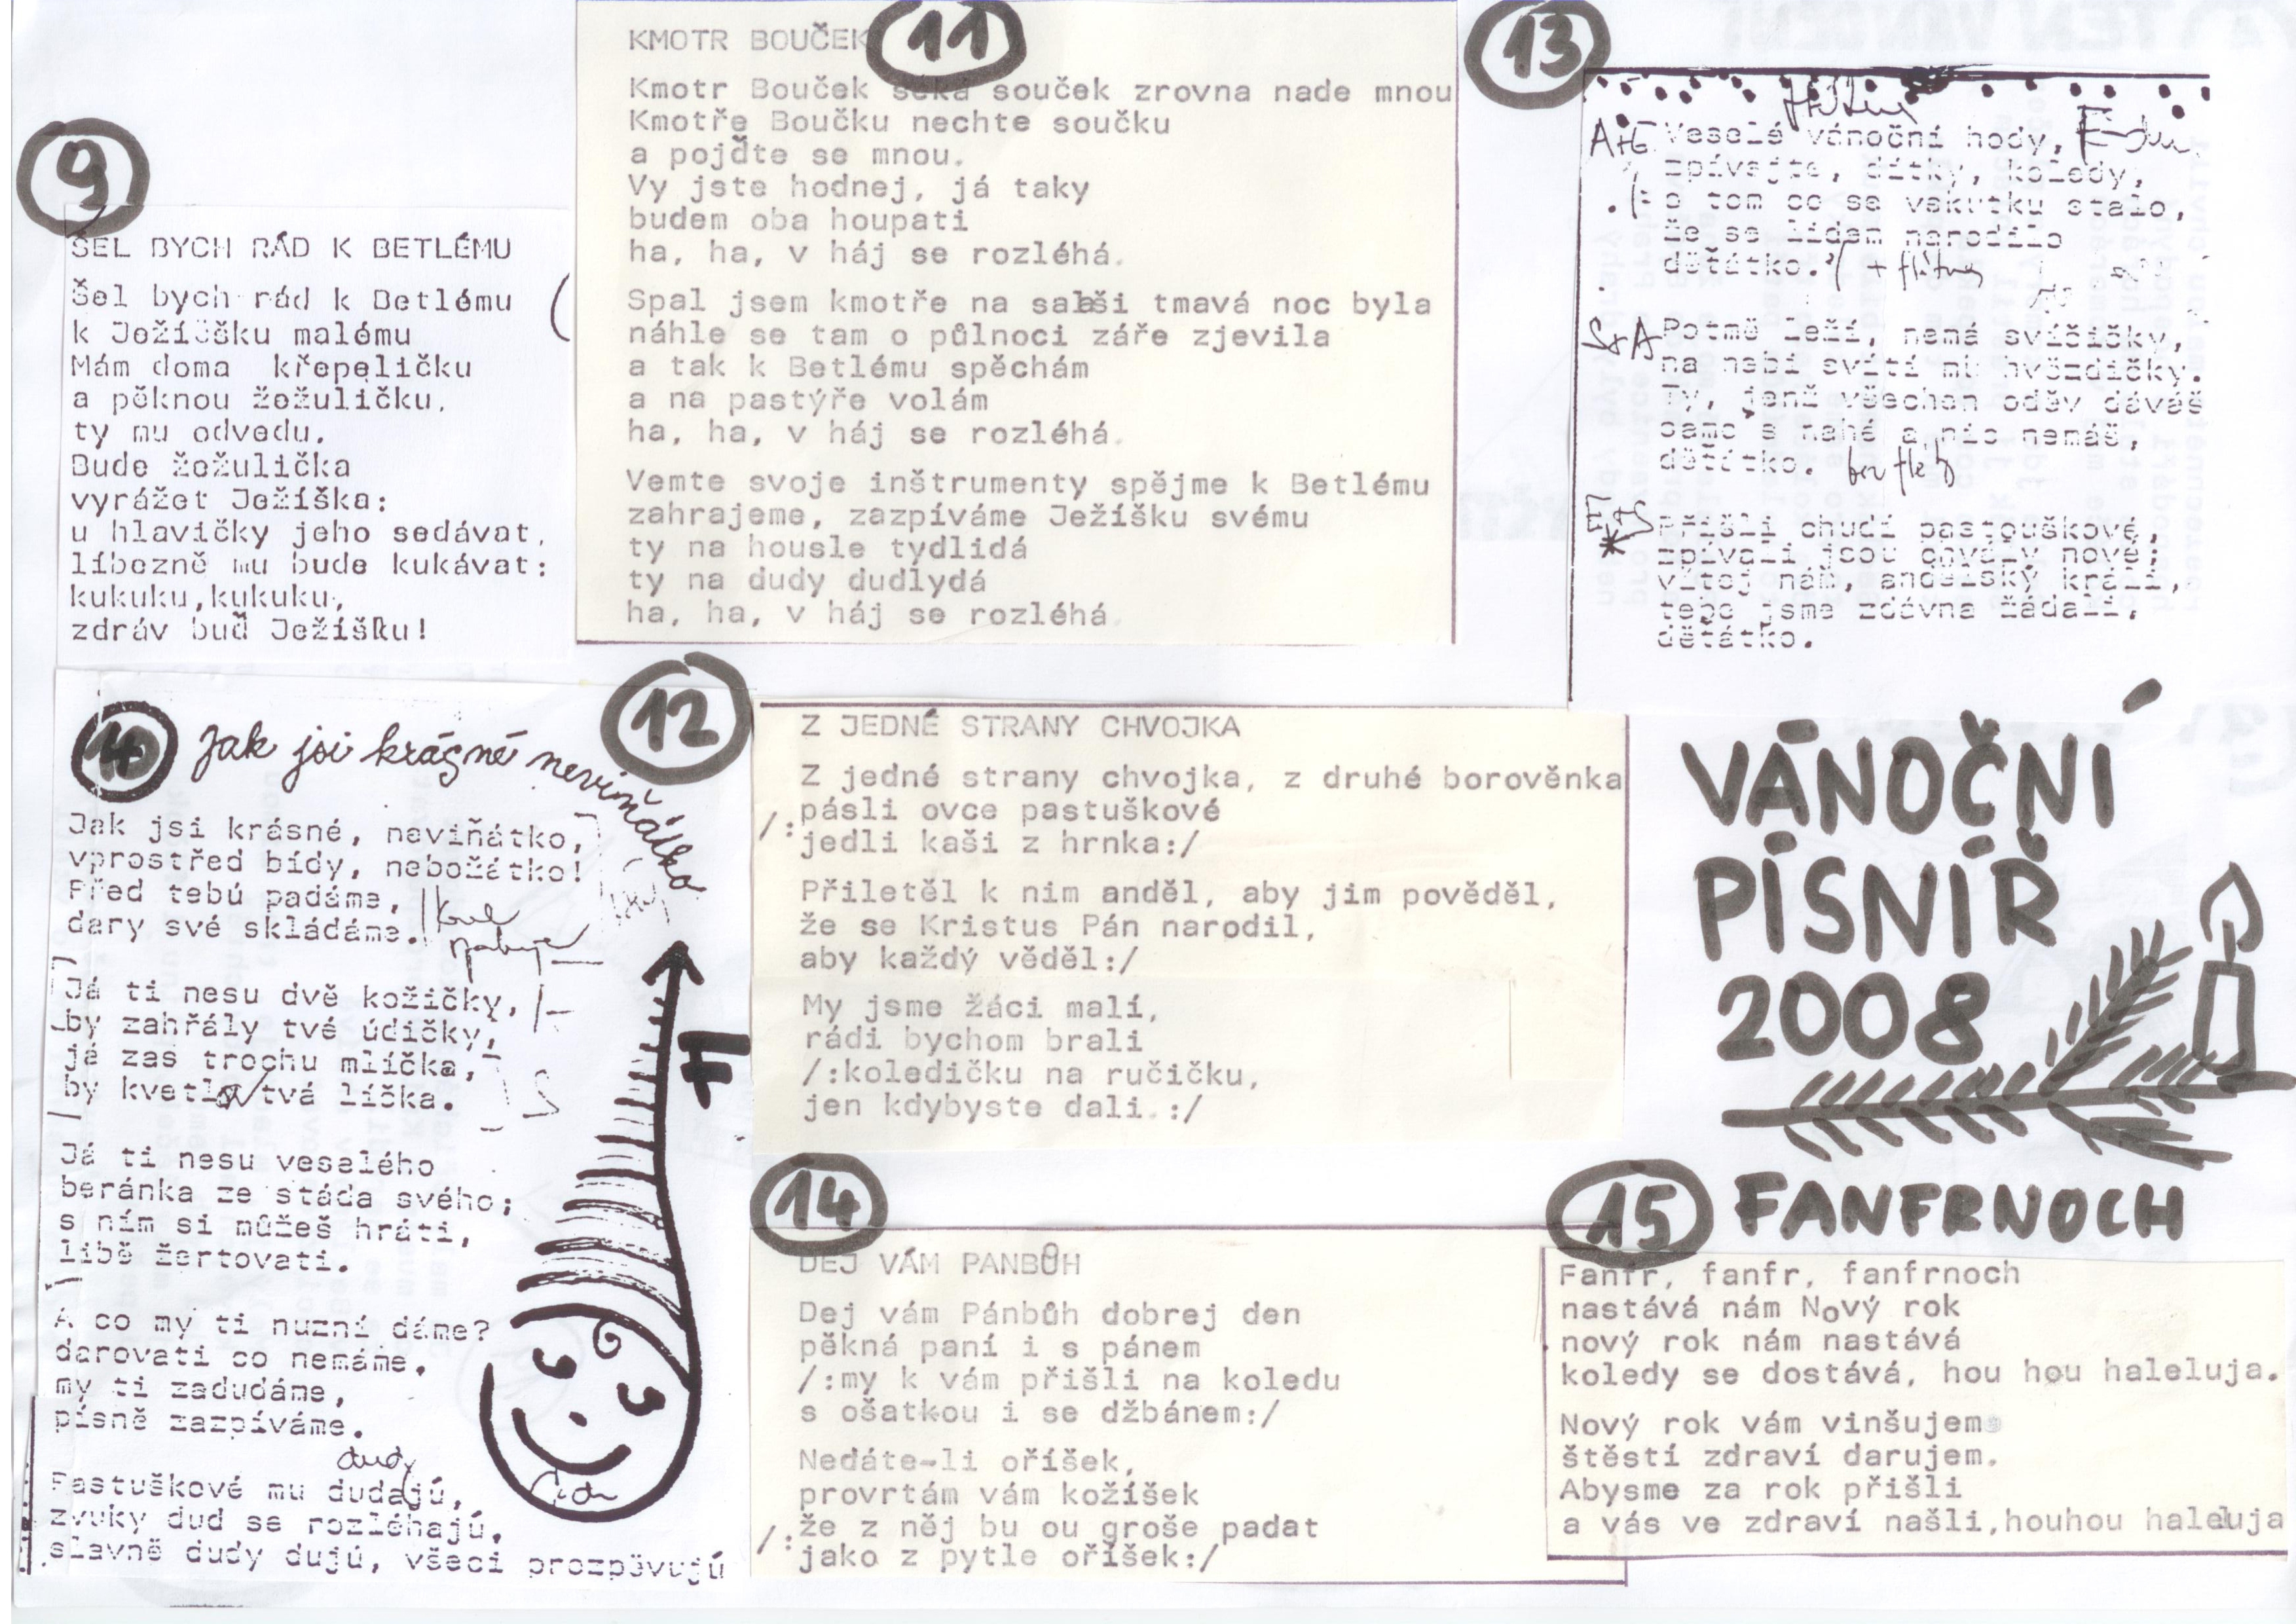 9
ŠEL BYCH RÁD K BETLÉMU
Šel bych rád k Betlému
k Ježíšku malému
Mám doma křepeličku
a pěknou žežuličku,
ty mu odvedu.
Bude žežulička
vyrážet Ježíška:
u hlavičky jeho sedávat,
líbezně mu bude kukávat:
kukuku,kukuku,
zdráv buď Ježíšku!
10
Jak jsi krásné neviňátko
Jak jsi krásné, neviňátko,
vprostřed bídy, nebožátko!
Před tebú padáme,
dary své skládáme.
Já ti nesu dvě kožičky,
by zahřály tvé údičky,
já zas trochu mlíčka,
by kvetla tvá líčka.
Já ti nesu veselého
beránka ze stáda svého;
s ním si můžeš hráti,
libě žertovati.
A co my ti nuzní dáme?
darovati co nemáme,
my ti zadudáme,
písně zazpíváme.
dudy
Pastuškové mu dudajú,
zvuky dud se rozléhajú,
slavně dudy dujú, všeci prozpěvujú
F
11
KMOTR BOUČEK
Kmotr Bouček seká souček zrovna nade mnou
Kmotře Boučku nechte součku
a pojďte se mnou.
Vy jste hodnej, já taky
budem oba houpati
ha, ha, v háj se rozléhá.
Spal jsem kmotře na salaši tmavá noc byla
náhle se tam o půlnoci záře zjevila
a tak k Betlému spěchám
a na pastýře volám
ha, ha, v háj se rozléhá.
Vemte svoje inštrumenty spějme k Betlému
zahrajeme, zazpíváme Ježíšku svému
ty na housle tydlidá
ty na dudy dudlydá
ha, ha, v háj se rozléhá.
12
Z JEDNÉ STRANY CHVOJKA
Z jedné strany chvojka, z druhé borověnka
/:pásli ovce pastuškové
jedli kaši z hrnka:/
Přiletěl k nim anděl, aby jim pověděl,
že se Kristus Pán narodil,
aby každý věděl:/
My jsme žáci malí,
rádi bychom brali
/:koledičku na ručičku,
jen kdybyste dali.:/
13
A+E Veselé vánoční hody,
zpívejte, dítky, koledy,
/:o tom co se vskutku stalo,
že se lidem narodilo
děťátko.:/ + flétny
S+A Potmě leží, nemá svíčičky,
na nebi svítí mu hvězdičky.
Ty, jenž všechen oděv dáváš
samo's nahé a nic nemáš,
děťátko. bez fléty
Přišli chudí pastouškové,
zpívali jsou noviny nové:
vítej nám, andělský králi,
tebe jsme zdávna žádali,
děťátko.
14
DEJ VÁM PANBŮH
Dej vám Pánbůh dobrej den
pěkná paní i s pánem
/:my k vám přišli na koledu
s ošatkou i se džbánem:/
Nedáte-li oříšek,
provrtám vám kožíšek
/:že z něj bu ou groše padat
jako z pytle oříšek:/
VÁNOČNÍ
PÍSNÍŘ
2008
15
FANFRNOCH
Fanfr, fanfr, fanfrnoch
nastává nám Nový rok
nový rok nám nastává
koledy se dostává, hou hou haleluja.
Nový rok vám vinšujem
štěstí zdraví darujem.
Abysme za rok přišli
a vás ve zdraví našli,houhou haleluja